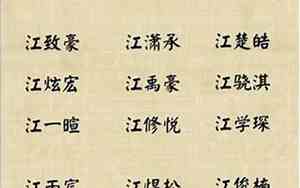 江致豪 江潇承 江楚皓
江炫宏 江禹豪 江骁淇
江一暄 江修悦 江学琛
江 江 松 江俊楠